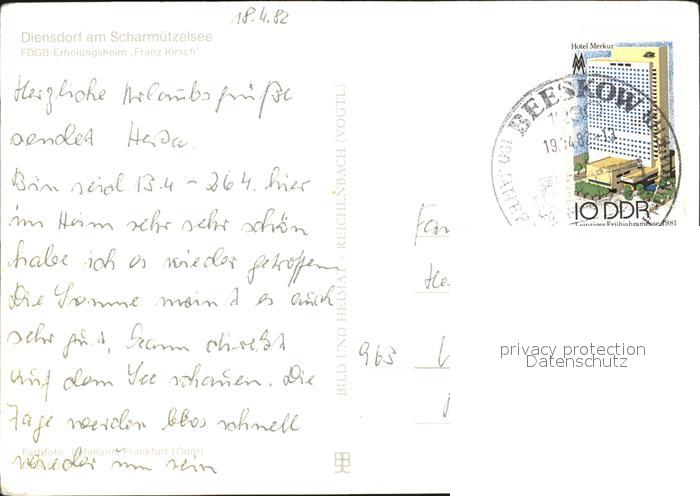 18.4.82
Diensdorf am Scharmützelsee
FDGB-Erholungsheim „Franz Kirsch“
Herzliche Urlaubsgrüße
sendet Herta.
Bin seid 13.4 - 26 4. hier
im Heim sehr sehr schön
habe ich es wieder getroffen
Die Sonne meint es auch
sehr gut, kann direkt
auf dem See schauen. Die
Tage werden blos schnell
wieder um sein
Farbfoto: Lehmann, Frankfurt (Oder)
BILD UND HEIMAT · REICHENBACH (VOGTL)
Hotel Merkur
10 DDR
Leipziger Frühjahrsmesse 1981
BEESKOW
Fam
He
963
privacy protection
Datenschutz